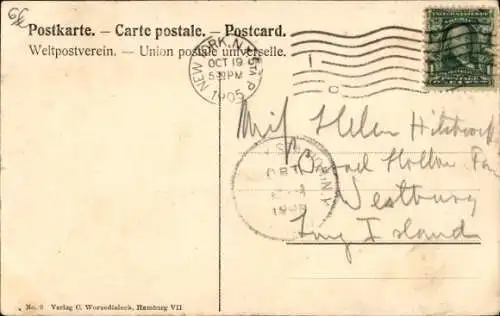 Postkarte. — Carte postale. — Postcard.
Weltpostverein. — Union postale universelle.
NEW YORK, N.Y.
OCT 19
5 PM
1905
Miss Helen
Broad Hollow
Westbury
Long Island
No. 9 Verlag C. Worzedialeck, Hamburg VII